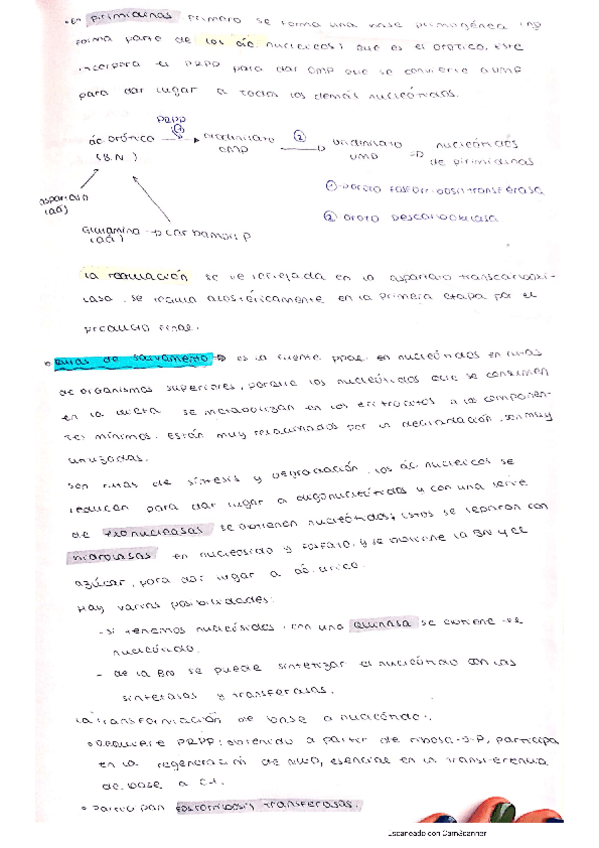 · En pirimidinas primero se forma una base primogénea (no
forma parte de los ác. nucleicos) que es el orotico. Este
incorpora el PRPP para dar OMP que se convierte a UMP
para dar lugar a todos los demás nucleótidos.
PRPP
①
ác. orótico → orotidinilato ② → uridinilato ⇒ nucleótidos
(B.N.) OMP UMP de pirimidinas
aspartato
(aa)
① oroto fosforribosil transferasa
glutamina → carbamoil P
(aa)
② oroto descarboxilasa
La regulación se ve reflejada en la aspartato transcarboxi-
lasa, se regula alostéricamente en la primera etapa por el
producto final.
• Rutas de salvamento → es la fuente ppal. en nucleótidos en rutas
de organismos superiores, porque los nucleótidos que se consumen
en la dieta se metabolizan en los eritrocitos a los componen-
tes mínimos. Están muy relacionados por la degradación, son muy
utilizadas.
Son rutas de síntesis y degradación. Los ác. nucleicos se
reducen para dar lugar a oligonucleótidos y con una serie
de exonucleasas se obtienen nucleótidos; estos se separan con
hidrolasas en nucleósido y fosfato, y se obtiene la BN y el
azúcar, para dar lugar a ác. urico.
Hay varias posibilidades:
- si tenemos nucleósidos, con una quinasa se obtiene el
nucleótido.
- de la BN se puede sintetizar el nucleótido con las
sintetasas y transferasas.
La transformación de base a nucleótido:
• Requiere PRPP: obtenido a partir de ribosa-5-P, participa
en la regeneración de nuevo, esencial en la transferencia
de base a C1.
• Participan fosforribosil transferasas.
Escaneado con CamScanner